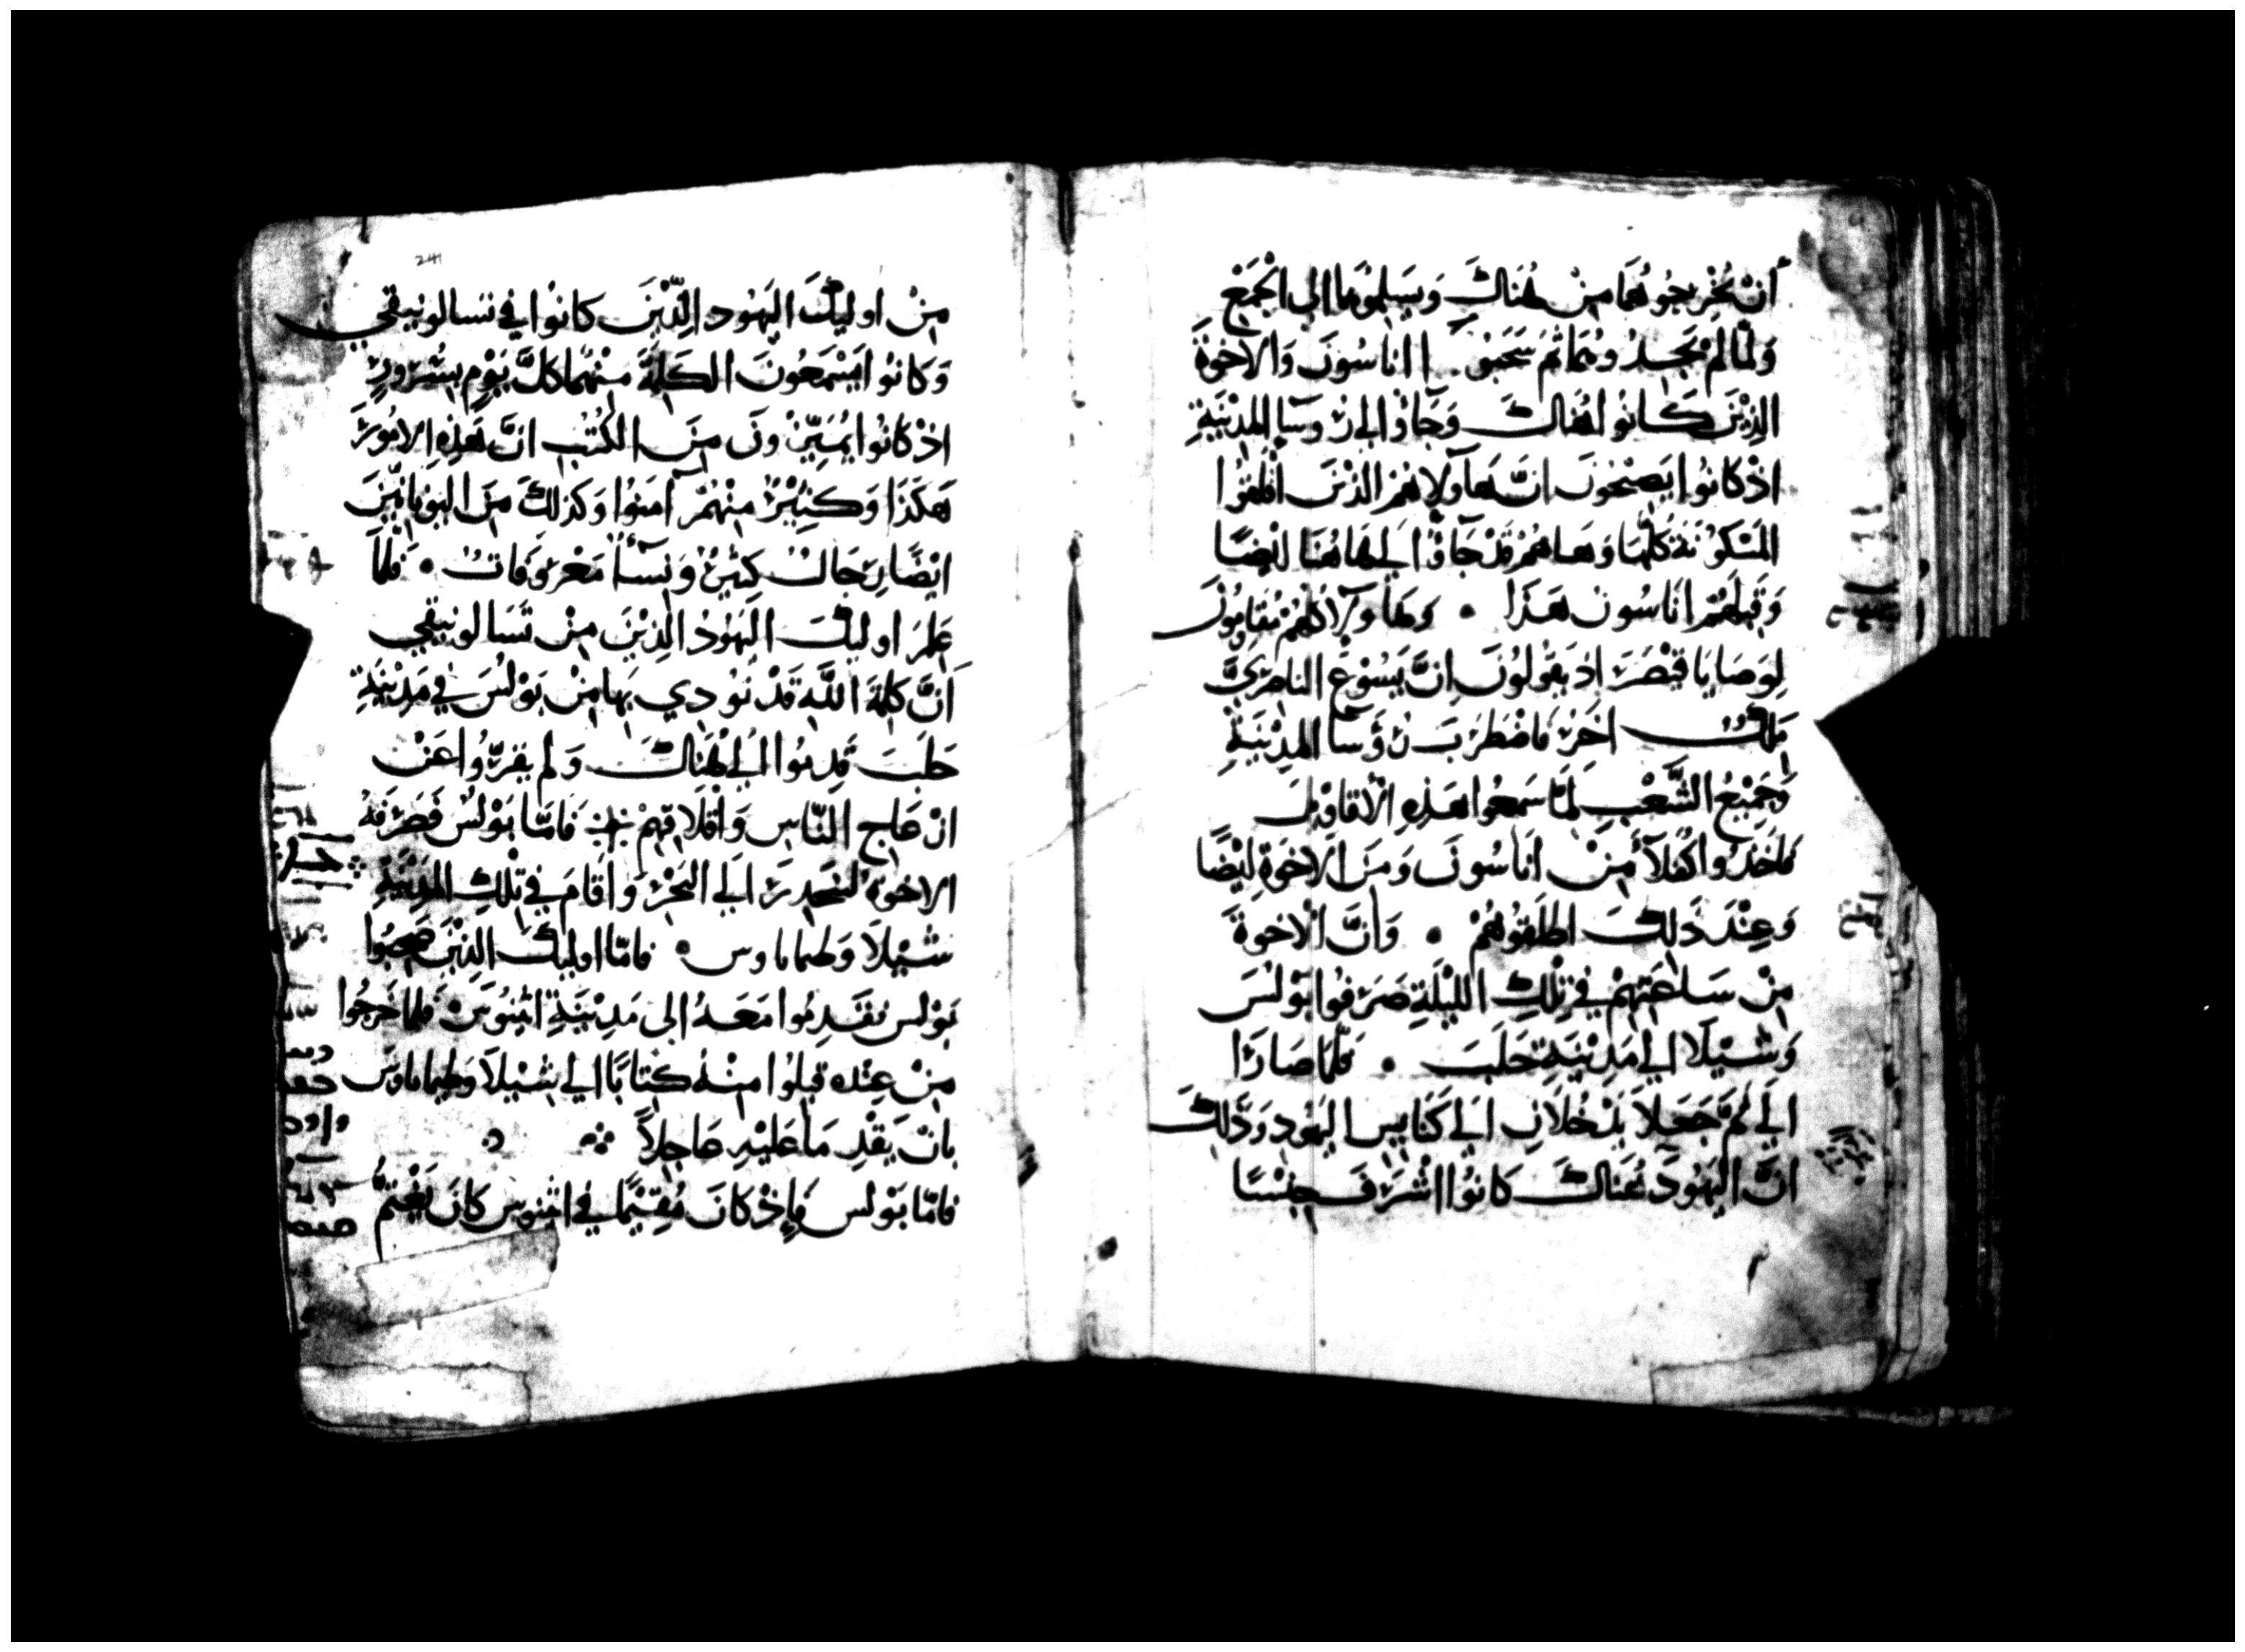 أَنْ يُخْرِجُوهُمَا مِنْ هُنَاكَ وَيُسَلِّمُوهُمَا الى الجَمْعِ
وَلَمَّا لَمْ يَجِدُوهُمَا ثَمَّ سَحَبُو ا اناسُونَ وَالاخوَةَ
الذِيْنَ كَانُوا هُنَاكَ وَجَآؤُا الى رُوسَآءِ المَدِيْنَةِ
اذْ كَانُوا يَصِيْحُونَ انَّ هَآولاءِ هُمُ الذِيْنَ اقْلَقُوا
المَسْكُوْنَةَ كُلَّهَا وَهَاهُمْ قَدْ جَآؤُا الى هَاهُنَا ايْضًا
وَقَبِلَهُمْ انَاسُون هَذَا • وَهَاوَلآءِ كُلُّهُمْ مُقَاوِمُونَ
لِوَصَايَا قَيْصَرَ اذ يَقُولُونَ انَّ يَسُوْعَ الناصِرَيَّ
مَلِكٌ اخَرُ فَاضْطَرَبَ رُؤَسَآءُ المَدِيْنَةِ
وَجَمِيْعُ الشَّعْبِ لَمَّا سَمِعُوا هَذِهِ الاقَاوِيْلَ
فاخَذُوا كُفَلآءَ مِنْ انَاسُونَ وَمِنَ الاخوَةِ ايْضًا
وَعِنْدَ ذَلِكَ اطلَقُوْهُمْ • وَانَّ الاخوَةَ
مِنْ سَاعَتِهِمْ فِي تِلْكَ الليْلَةِ صَرَفُوا بَوْلُسَ
وَشِيْلَا الى مَدِيْنَةِ حَلَبَ • فَلَمَّا صَارَا
الى ثَمَّ جَعَلَا يَدْخُلَانِ الى كَنَايِسِ اليَهُودِ وَذَلِكَ
انَّ اليَهُودَ هُنَاكَ كَانُوا اشْرَفَ جِنْسًا
241
مِنْ اوليِكَ اليَهُود الَّذِيْنَ كانُوْا في تسالونيقي
وَكَانُوا يَسْمَعُونَ الكَلِمَةَ مِنْهُمَا كُلَّ يَوْمٍ بِسُرُورٍ
اذْ كَانُوا يُمَيِّزُونَ مِنَ الكُتُبِ انَّ هَذِهِ الامُورَ
هَكَذَا وَكَثِيْرٌ مِنْهُمْ آمَنُوا وَكَذلكَ مِنَ اليُونَانِيِّيْنَ
ايْضًا رِجَالٌ كَثِيْرٌ وَنِسَآءٌ مَعْرُوفَاتٌ • فَلَمَّا
عَلِمَ اوليِكَ اليَهُودُ الذِيْنَ مِنْ تَسَالونيقي
أَنَّ كلِمَةَ اللَّهِ قَدْ نُوْدِي بِهَا مِنْ بَوْلُسَ فِي مَدِيْنَةِ
حَلَبَ قَدِمُوا الى هُنَاكَ وَلم يَفْتُرُوا عَنْ
ازْعَاجِ النَّاسِ وَاقْلَاقِهِمْ ܀ فَامَّا بَوْلُسُ فَصَرَفَهُ
الاخوَةُ لينحَدِرَ الى البَحْرِ وَاقَامَ فِي تِلْكَ المَدِيْنَةِ
شِيْلَا وَطيماثاوس • فامَّا اوليِكَ الذِيْنَ صَحِبُوا
بَوْلس فَقَدِمُوا مَعَهُ الى مَدِيْنَةِ اثِيْنُوسَ فَلما خَرَجُوا
مِنْ عِنْدِه قَبِلُوا مِنْهُ كِتَابًا الى شِيْلَا وَطيماثاوس
بانْ يَقْدِمَا عَلَيْهِ عَاجِلاً
فامَّا بَوْلس فَإذْ كَانَ مُقِيْمًا فِي اثِنوس كانَ يَغْتَمُّ